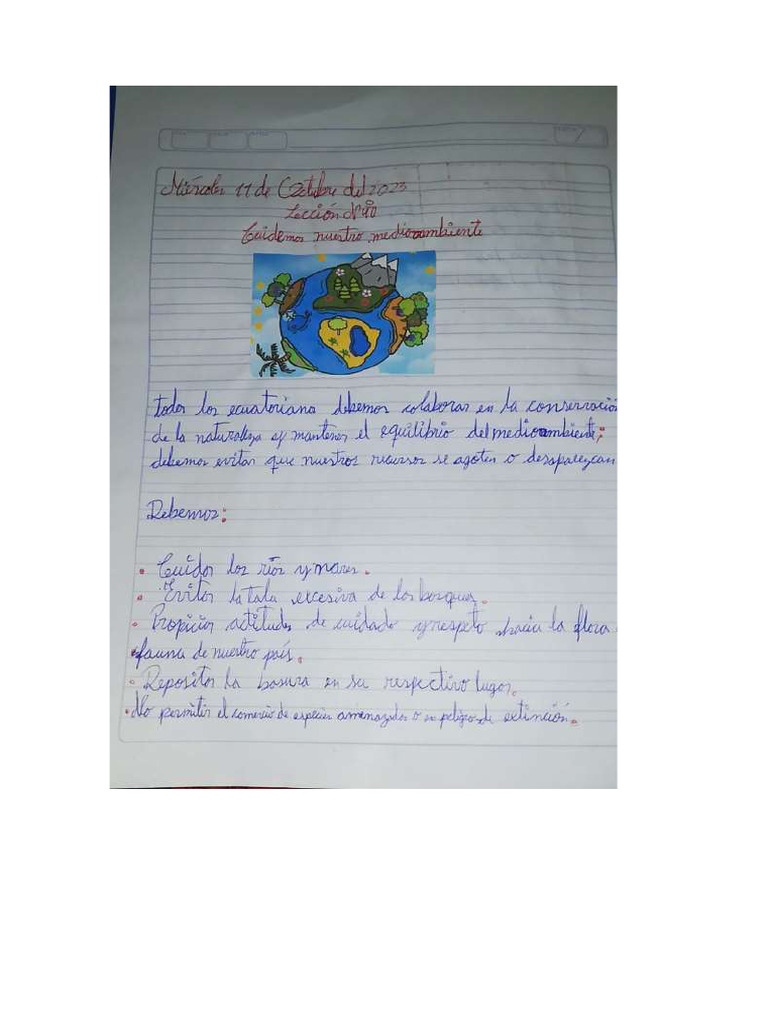 Miércoles 11 de Octubre del 2023
Lección N° 10
Cuidemos nuestro medioambiente
todos los ecuatoriano debemos colaborar en la conservación
de la naturaleza y mantener el equilibrio del medioambiente;
debemos evitar que nuestros recursos se agoten o desaparezcan
Debemos:
• Cuidar los ríos y mares.
• Evitar la tala excesiva de los bosques.
• Propiciar actitudes de cuidado y respeto hacia la flora
• fauna de nuestro país.
• Depositar la basura en su respectivo lugar.
• No permitir el comercio de especies amenazadas o en peligros de extinción.